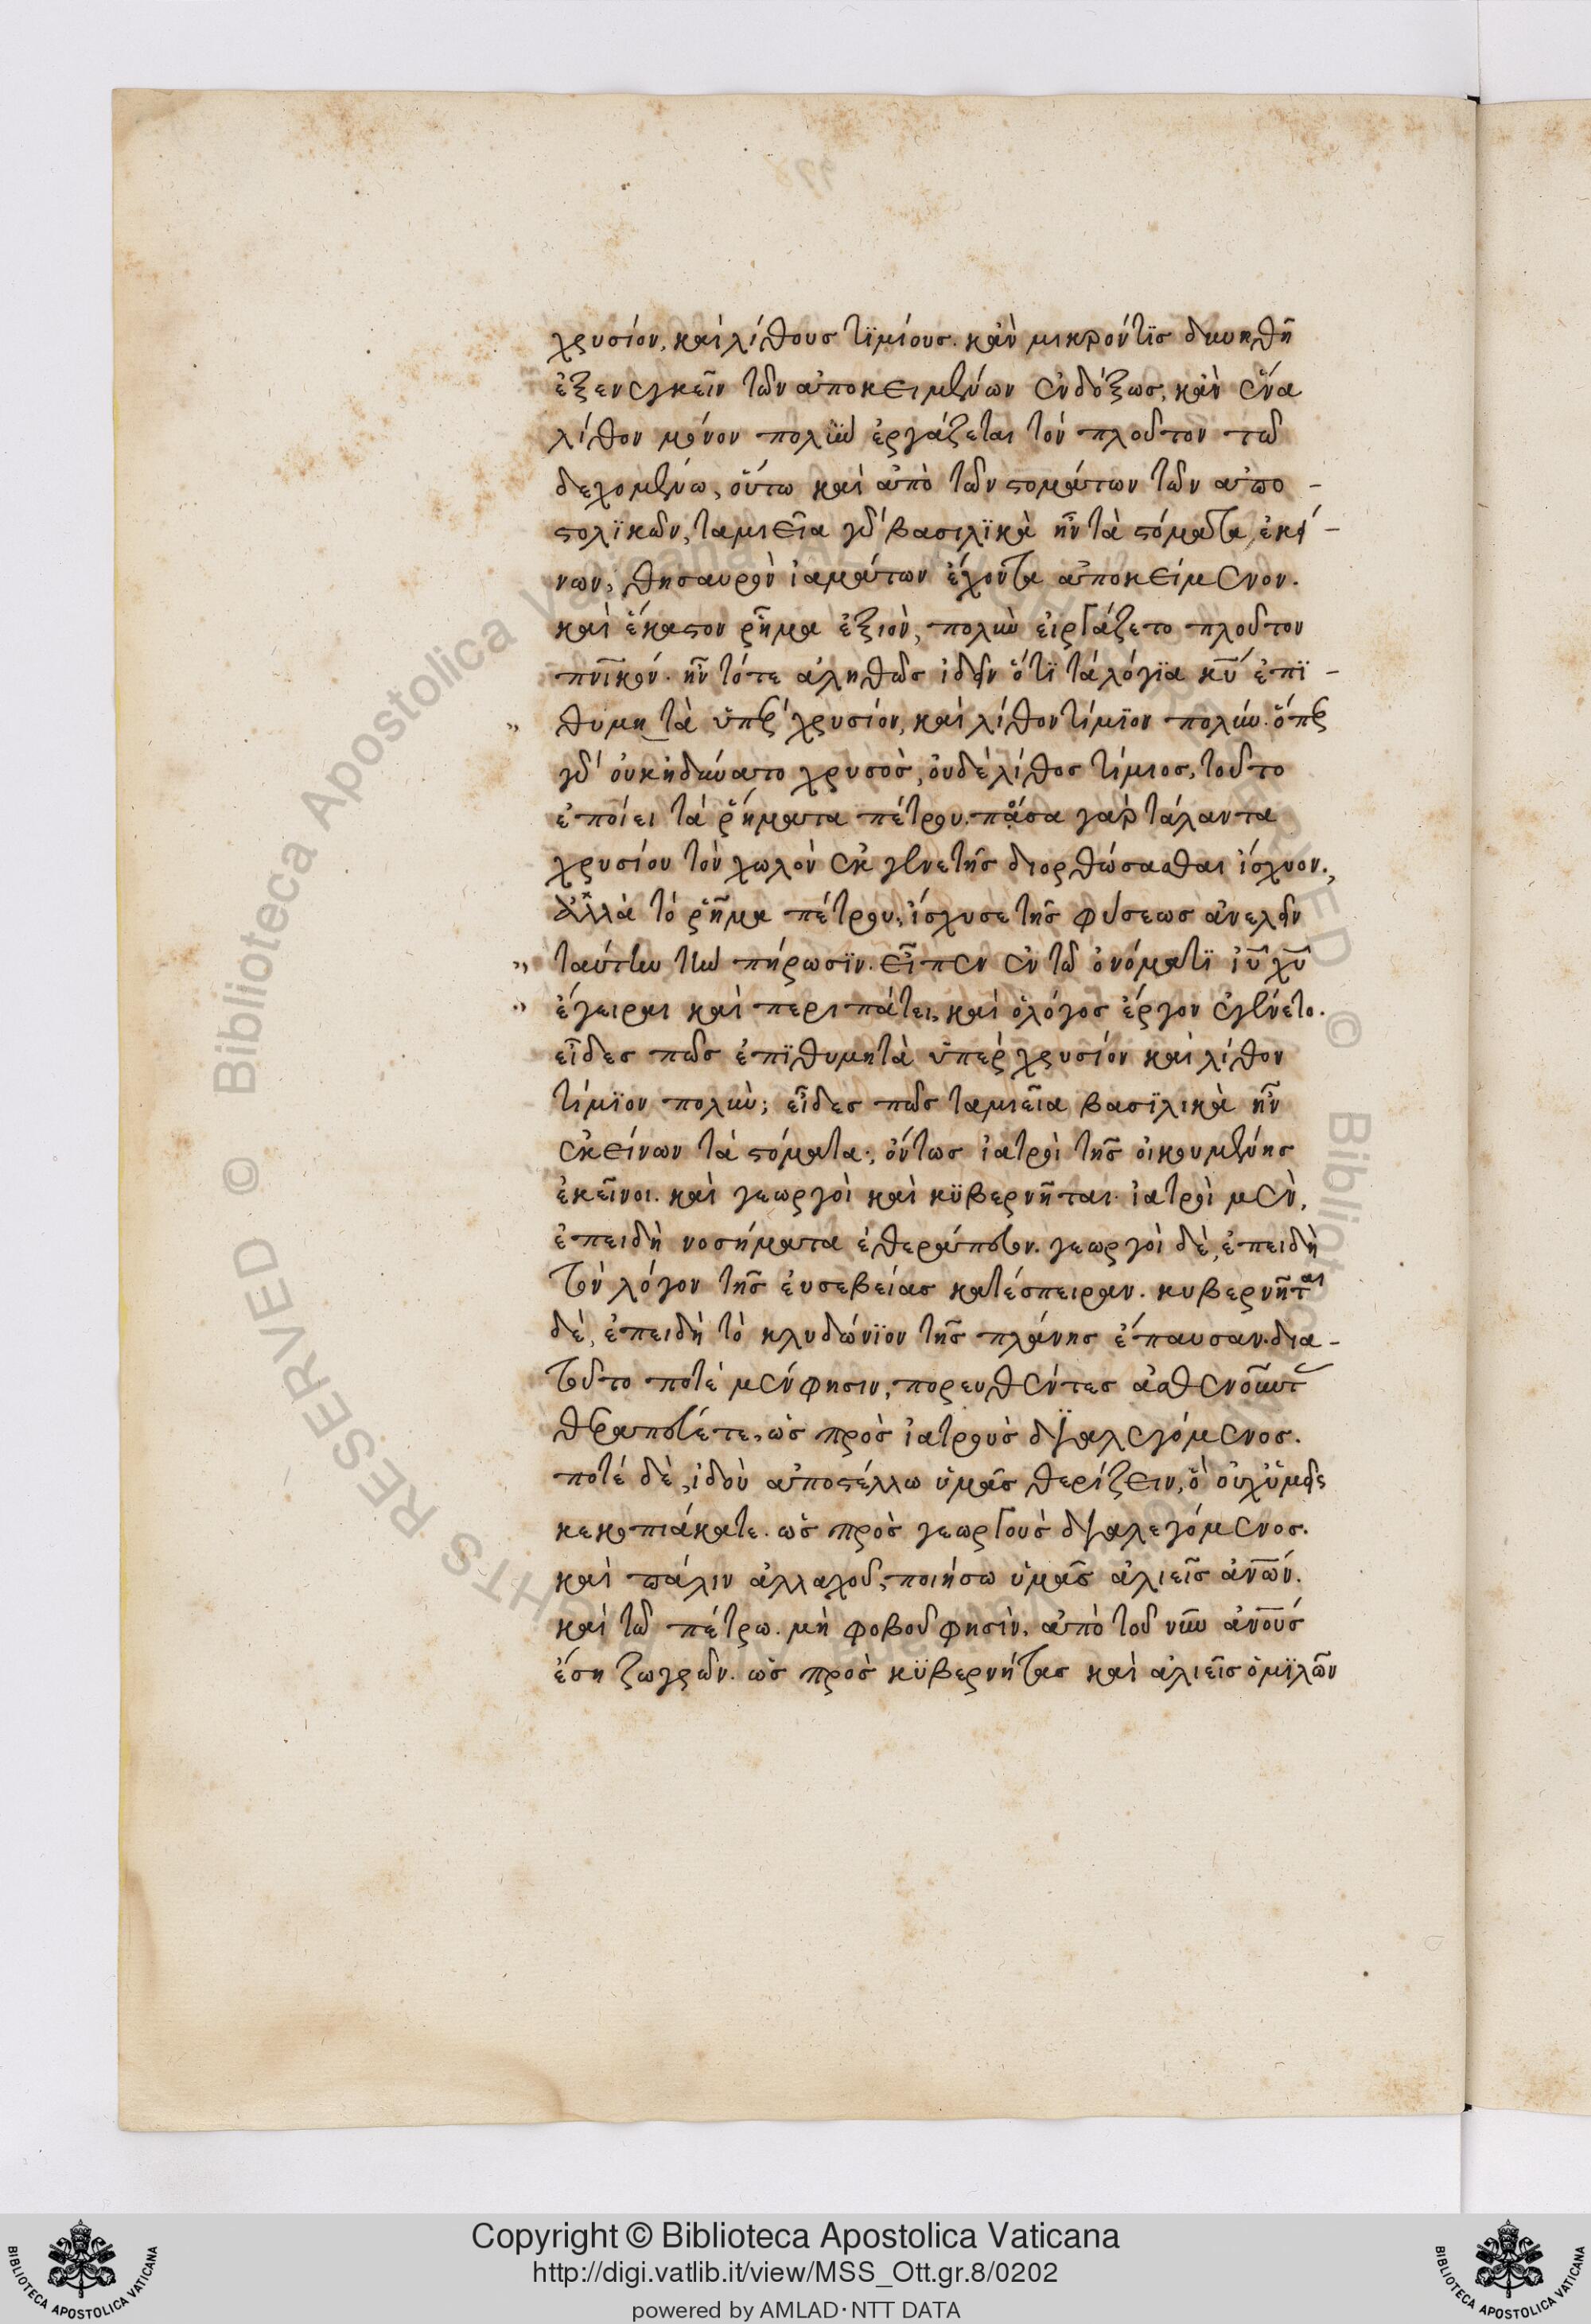 χρυσίον, καὶ λίθους τϊμίους. κἂν μικρόν τϊς δυνηθῆ
ἐξενεγκεῖν τῶν ἀποκειμένων ἐνδόξως, κἂν ἕνα
λίθον μόνον πολὺν ἐργάζεται τὸν πλοῦτον τῶ
δεχομένω, οὕτω καὶ ἀπὸ τῶν στομάτων τῶν ἀπο -
στολϊκῶν, ταμιεῖα γὰρ βασιλϊκὰ ἦν τὰ στόματα, ἐκεί -
νων, θησαυρὸν ἰαμάτων ἔχοντα ἀποκείμενον.
καὶ ἕκαστον ῥῆμα ἐξιὸν, πολὺν εἰργάζετο πλοῦτον
πνϊκόν. ἦν τότε ἀληθῶς ἰδεῖν ὅτϊ τὰ λόγϊα κυ ἐπϊ -
" θυμητὰ ὑπὲρ χρυσίον, καὶ λίθον τίμϊον πολύν. ὅπερ
γὰρ οὐκ ἠδύνατο χρυσὸς, οὐδὲ λίθος τίμιος, τοῦτο
ἐποίει τὰ ῥήματα πέτρου. πόσα γὰρ τάλαντα
χρυσίου τὸν χωλὸν ἐκ γενετῆς διορθώσασθαι ἴσχυον.,
ἀλλὰ τὸ ῥῆμα πέτρου, ἴσχυσε τῆς φύσεως ἀνελεῖν
" ταύτην τὴν πήρωσϊν. εἶπεν ἐν τῶ ὀνόματϊ ιυ χυ
" ἔγειραι καὶ περιπάτει, καὶ ὁ λόγος ἔργον ἐγένετο.
εἶδες πῶς ἐπϊθυμητὰ ὑπὲρ χρυσίον καὶ λίθον
τίμϊον πολύν; εἶδες πῶς ταμιεῖα βασϊλικὰ ἦν
ἐκείνων τὰ στόματα., ὄντως ἰατροὶ τῆς οἰκουμένης
ἐκεῖνοι. καὶ γεωργοὶ καὶ κϋβερνῆται. ἰατροὶ μὲν,
ἐπειδὴ νοσήματα ἐθεράπευον. γεωργοὶ δὲ, ἐπειδὴ
τὸν λόγον τῆς εὐσεβείας κατέσπειραν. κυβερνῆται
δὲ, ἐπειδὴ τὸ κλυδώνϊον τῆς πλάνης ἔπαυσαν. δια -
τοῦτο ποτὲ μέν φησιν, πορευθέντες ἀσθενοῦντ
θεραπεύετε, ὡς πρὸς ἰατροὺς διαλεγόμενος.
ποτὲ δὲ, ἰδοὺ ἀποστέλλω ὑμᾶς θερίζειν, ὃ οὐχ ὑμεῖς
κεκοπιάκατε. ὡς πρὸς γεωργοὺς διαλεγόμενος.
καὶ πάλιν ἀλλαχοῦ, ποιήσω ὑμᾶς ἁλιεῖς ἀνῶν.
καὶ τῶ πέτρω. μὴ φοβοῦ φησὶν, ἀπὸ τοῦ νῦν ἀνους
ἔση ζωγρῶν. ὡς πρὸς κϋβερνήτας καὶ ἁλιεῖς ὁμϊλῶν
Copyright © Biblioteca Apostolica Vaticana
http://digi.vatlib.it/view/MSS_Ott.gr.8/0202
powered by AMLAD·NTT DATA